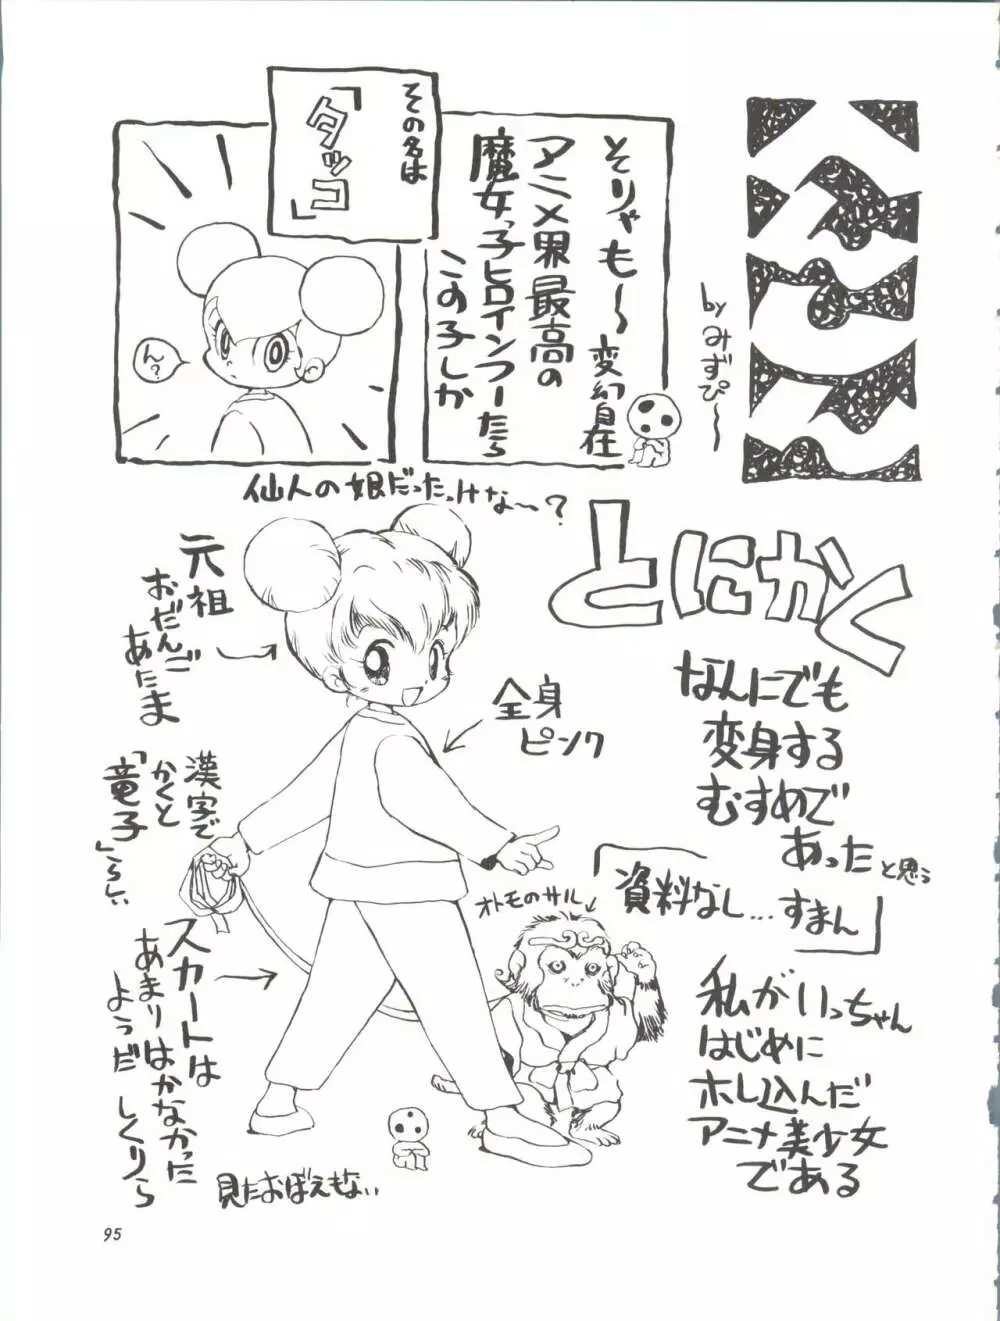 by みずぴ～
そりゃも～変幻自在
アニメ界最高の
魔女っ子ヒロインつーたら
この子しか
その名は
「タッコ」
ん?
仙人の娘だったっけな～?
とにかく
なんにでも
変身する
むすめで
あったと思う
「資料なし…すまん」
私がいっちゃん
はじめに
ホレ込んだ
アニメ美少女
である
元祖
おだんご
あたま
全身
ピンク
漢字で
かくと
「竜子」らしい
オトモのサル
スカートは
あまりはかなかった
ようだ
見たおぼえもない
95